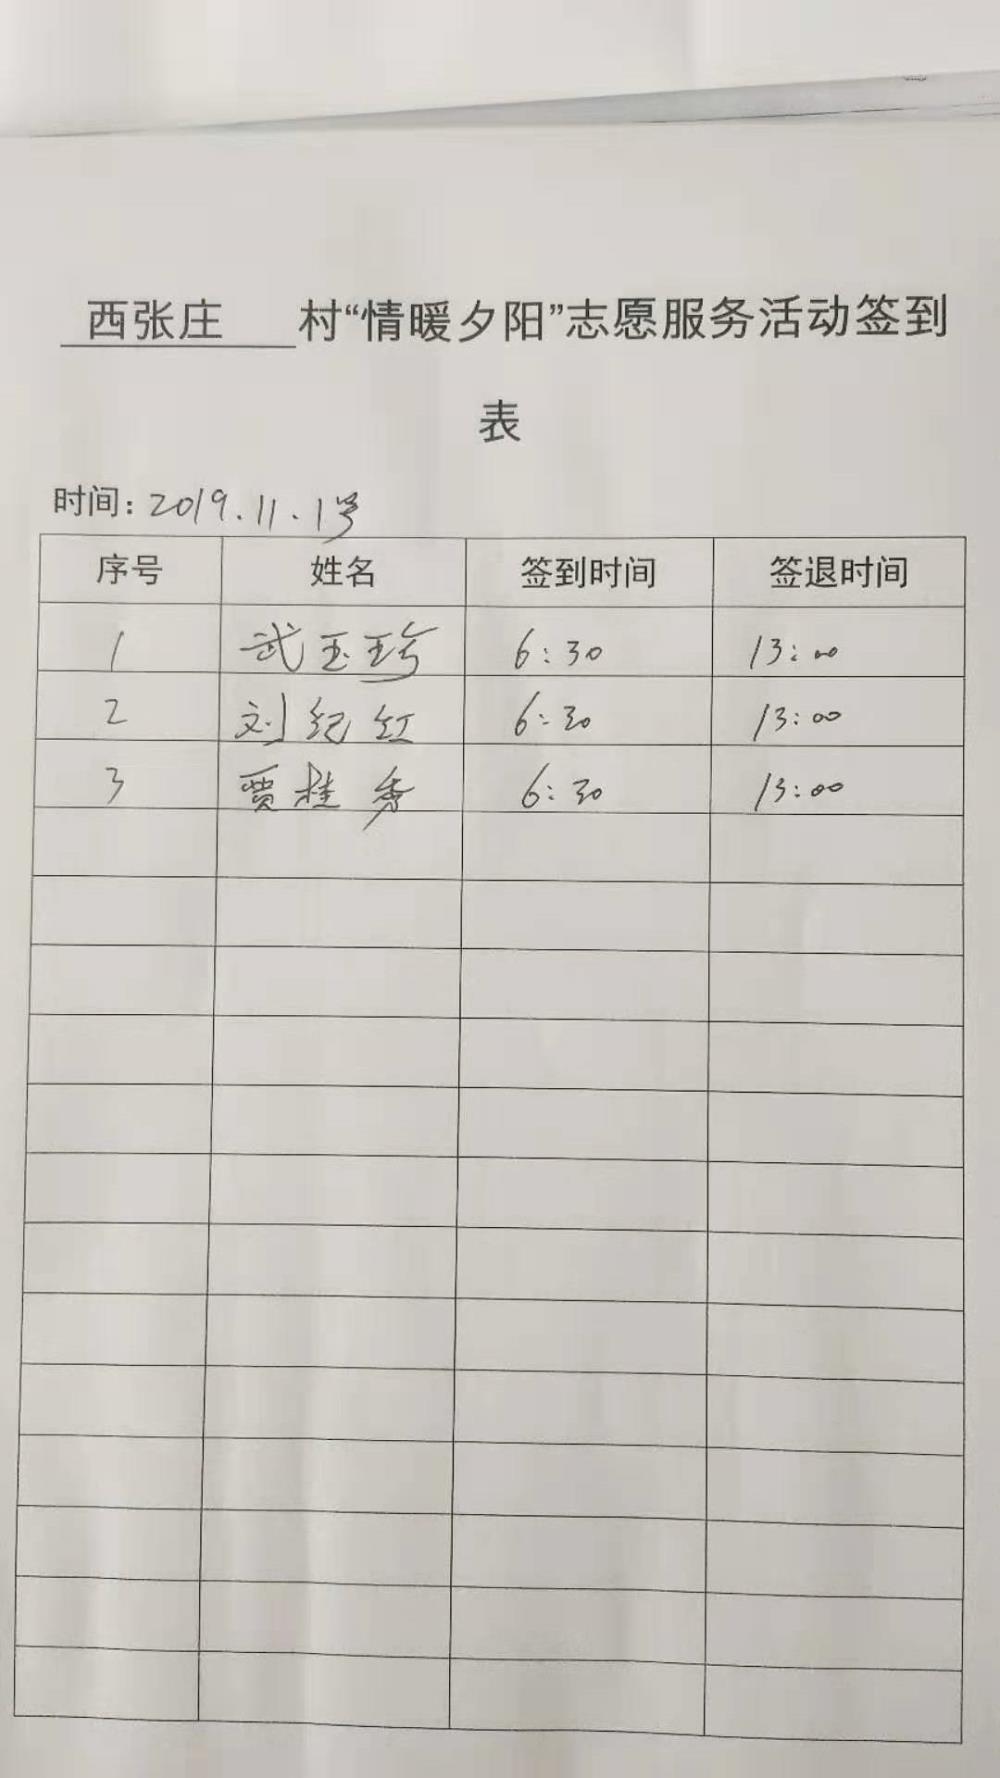 西张庄 村“情暖夕阳”志愿服务活动签到
表
时间: 2019.11.1号
序号 姓名 签到时间 签退时间
1 武玉珍 6:30 13:00
2 刘纪红 6:30 13:00
3 贾桂秀 6:30 13:00